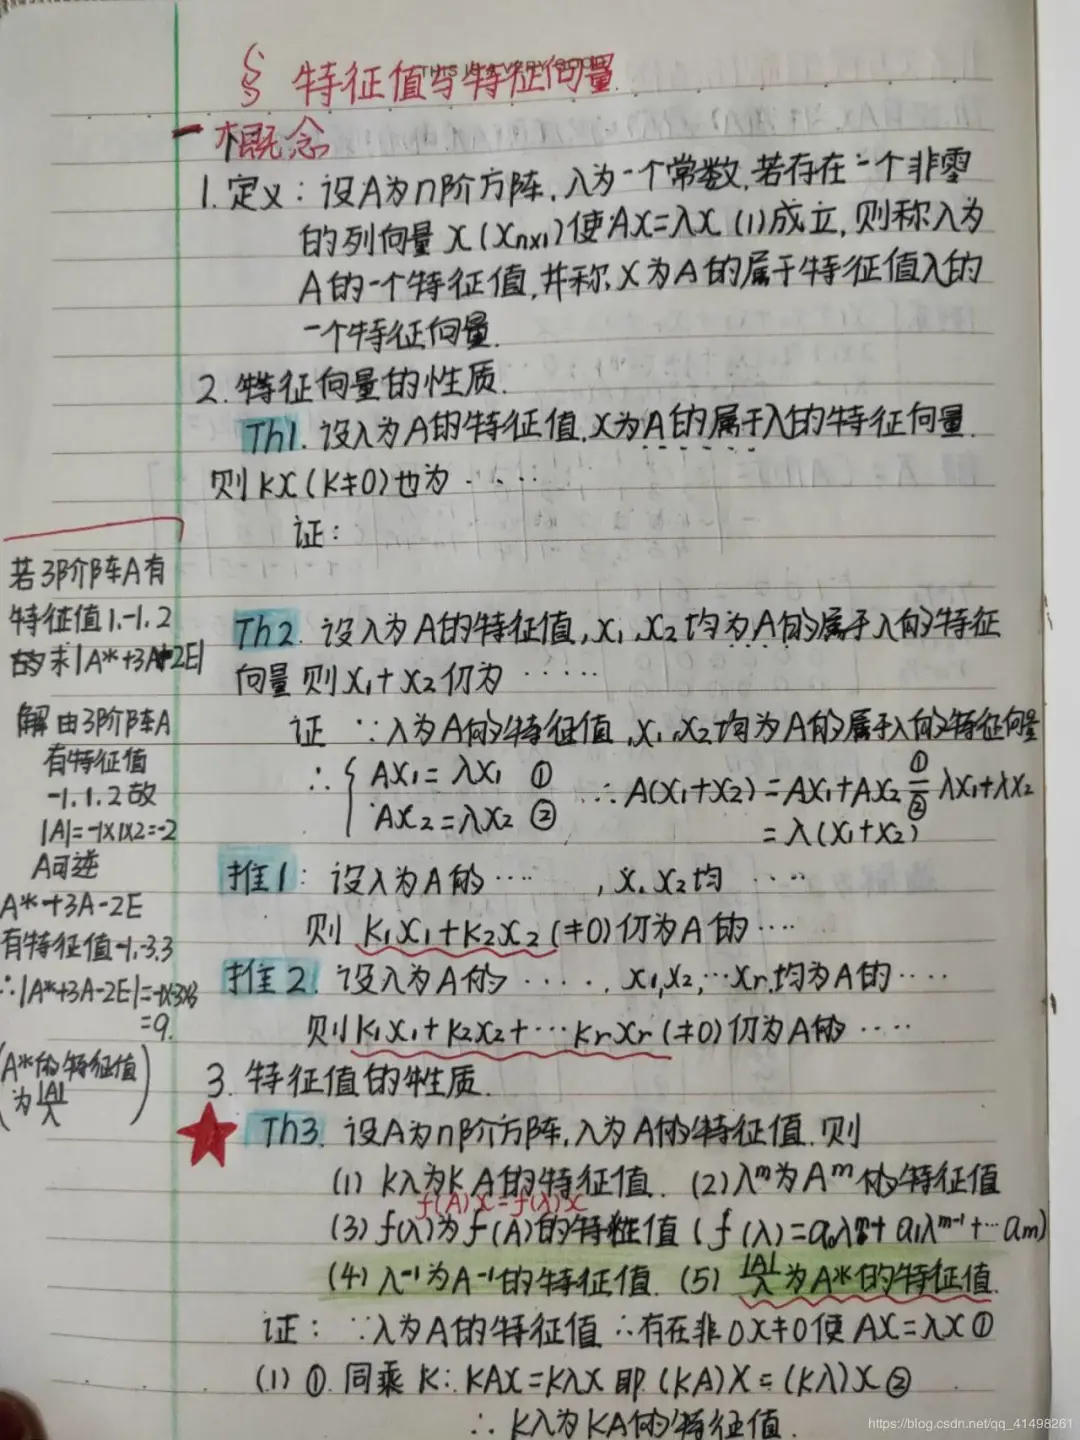 § 特征值与特征向量.
一 概念
1. 定义：设A为n阶方阵，λ为一个常数，若存在一个非零
的列向量 x (xₙₓ₁) 使 AX=λx (1)成立，则称λ为
A的一个特征值，并称 X为A的属于特征值λ的
一个特征向量.
2. 特征向量的性质.
Th1. 设λ为A的特征值，x为A的属于λ的特征向量.
则 kx(k≠0)也为 ·····
证：
Th2. 设λ为A的特征值，x₁,x₂均为A的属于λ的特征
向量则x₁+x₂仍为 ·····
证 ∵λ为A的特征值，x₁,x₂均为A的属于λ的特征向量
∴ { AX₁=λX₁ ① ∴A(X₁+X₂)=AX₁+AX₂ ①=② λX₁+λX₂
AX₂=λX₂ ② =λ(X₁+X₂)
推1：设λ为A的····，x. x₂均 ····
则 k₁x₁+k₂x₂(≠0)仍为A的····
推2. 设λ为A的·····，x₁,x₂,···xr.均为A的····
则k₁x₁+k₂x₂+···krxr(≠0)仍为A的·····
3. 特征值的性质.
Th3. 设A为n阶方阵，λ为A的特征值.则
(1) kλ为kA的特征值. (2)λᵐ为Aᵐ的特征值
f(A)x=f(λ)x
(3)f(λ)为f(A)的特征值(f(λ)=a₀λᵐ+a₁λᵐ⁻¹+···aₘ)
(4)λ⁻¹为A⁻¹的特征值. (5) |A|/λ为A*的特征值.
证：∵λ为A的特征值 ∴存在非0X≠0使AX=λX①
(1) ①.同乘K：KAX=KλX即(KA)X=(Kλ)X②
∴Kλ为KA的特征值.
若3阶阵A有
特征值1.-1.2
的求|A*+3A-2E|
解 由3阶阵A
有特征值
-1.1.2故
|A|=-1×1×2=-2
A可逆
A*+3A-2E
有特征值-1,-3.3
∴|A*+3A-2E|=-1×-3×3
=9.
(A*的特征值
为|A|/λ)
https://blog.csdn.net/qq_41498261